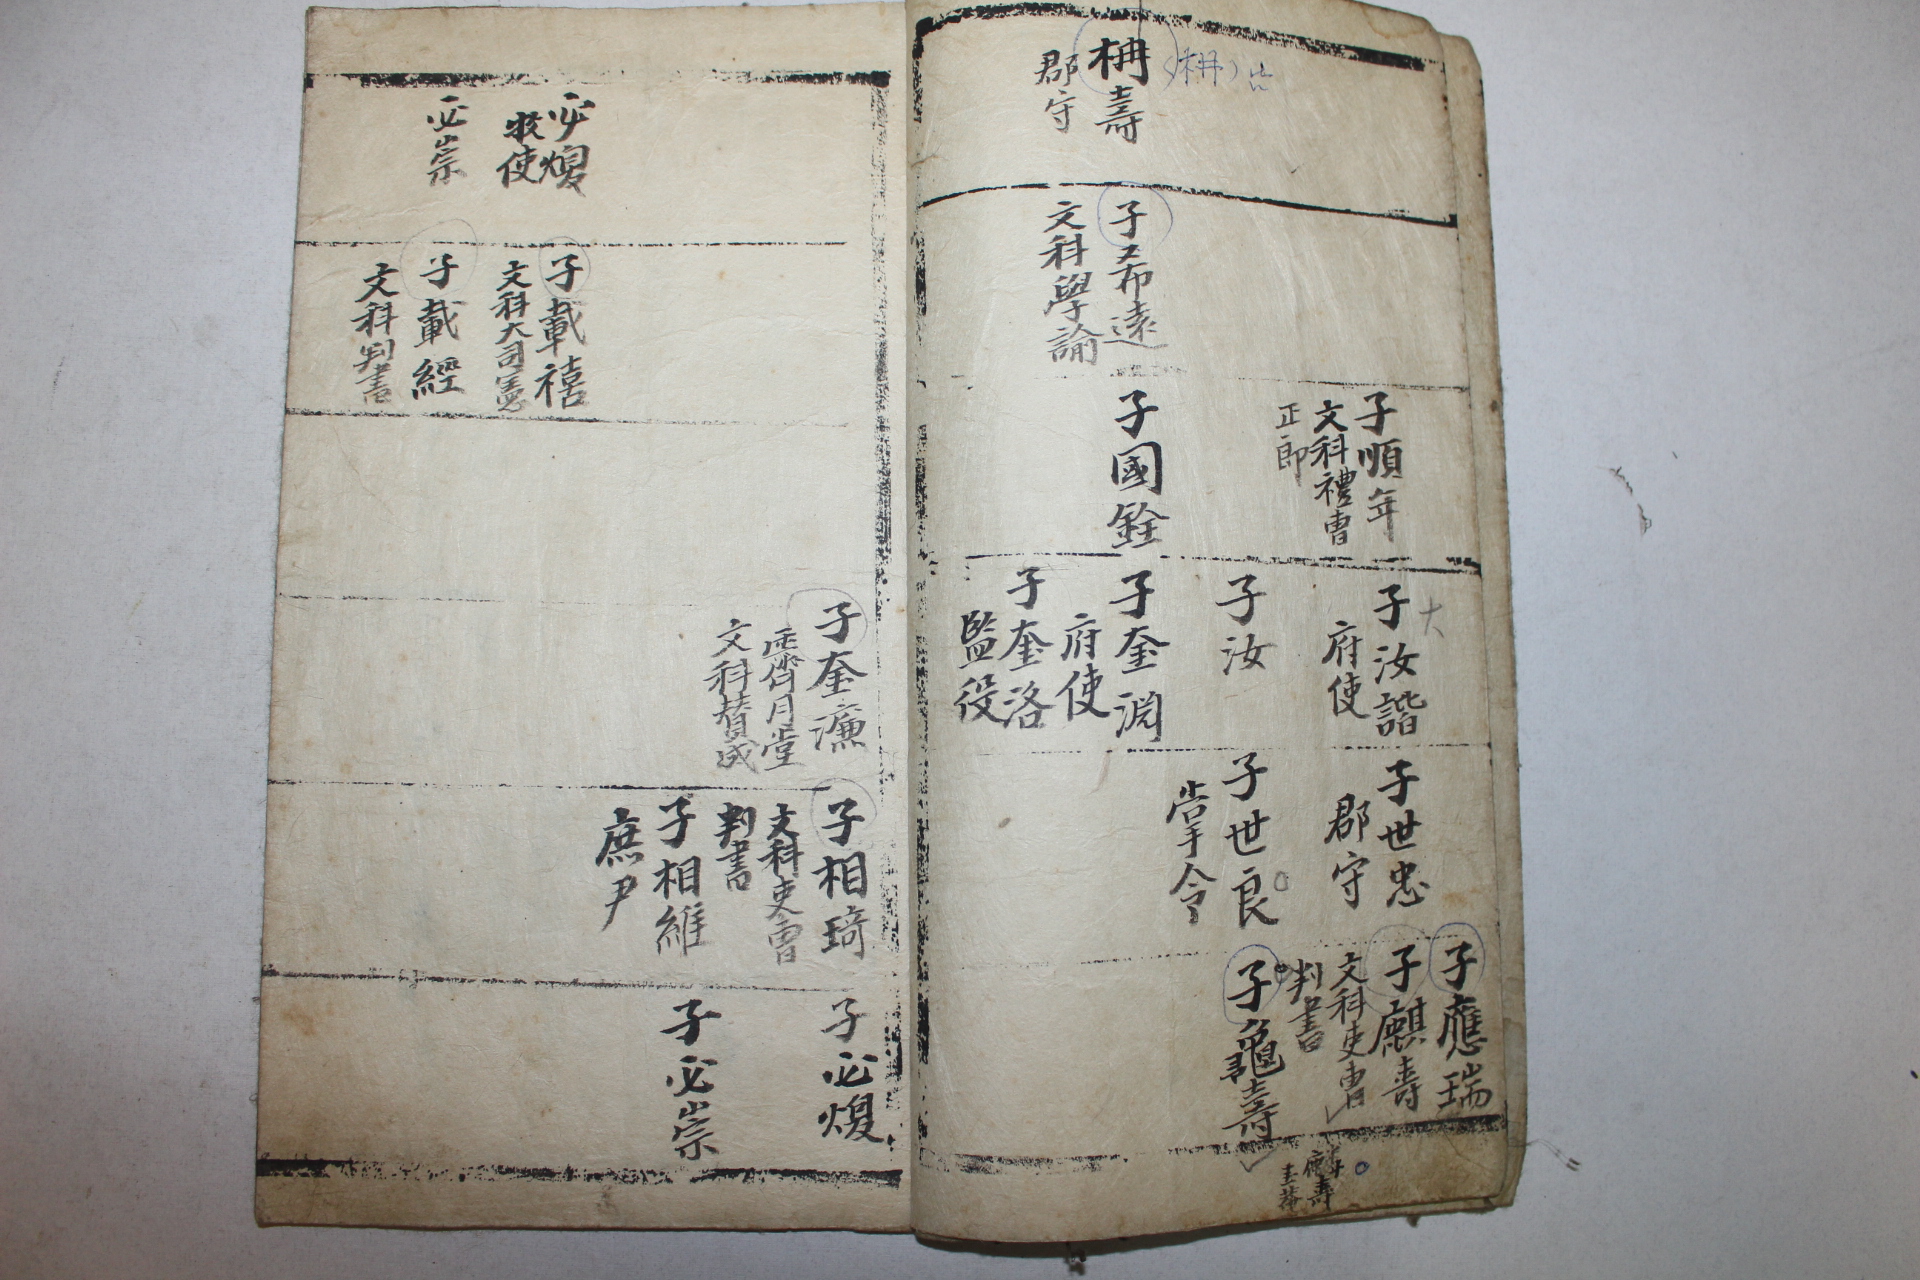 枏壽
郡守
(枏)
子希遠
文科學諭
子順年
文科禮曹
正郎
子國銓
子汝諧
府使
子汝
子奎淵
府使
子奎洛
監役
大
子世忠
郡守
子世良
掌令
子應瑞
子麒壽
文科吏曹
判書
子龜壽
麟壽
圭菴
子奎濂
霽月堂
文科贊成
子相琦
文科吏曹
判書
子相維
庶尹
子必煥
子必崇
必煥
牧使
必崇
子載禧
文科大司憲
子載經
文科判書